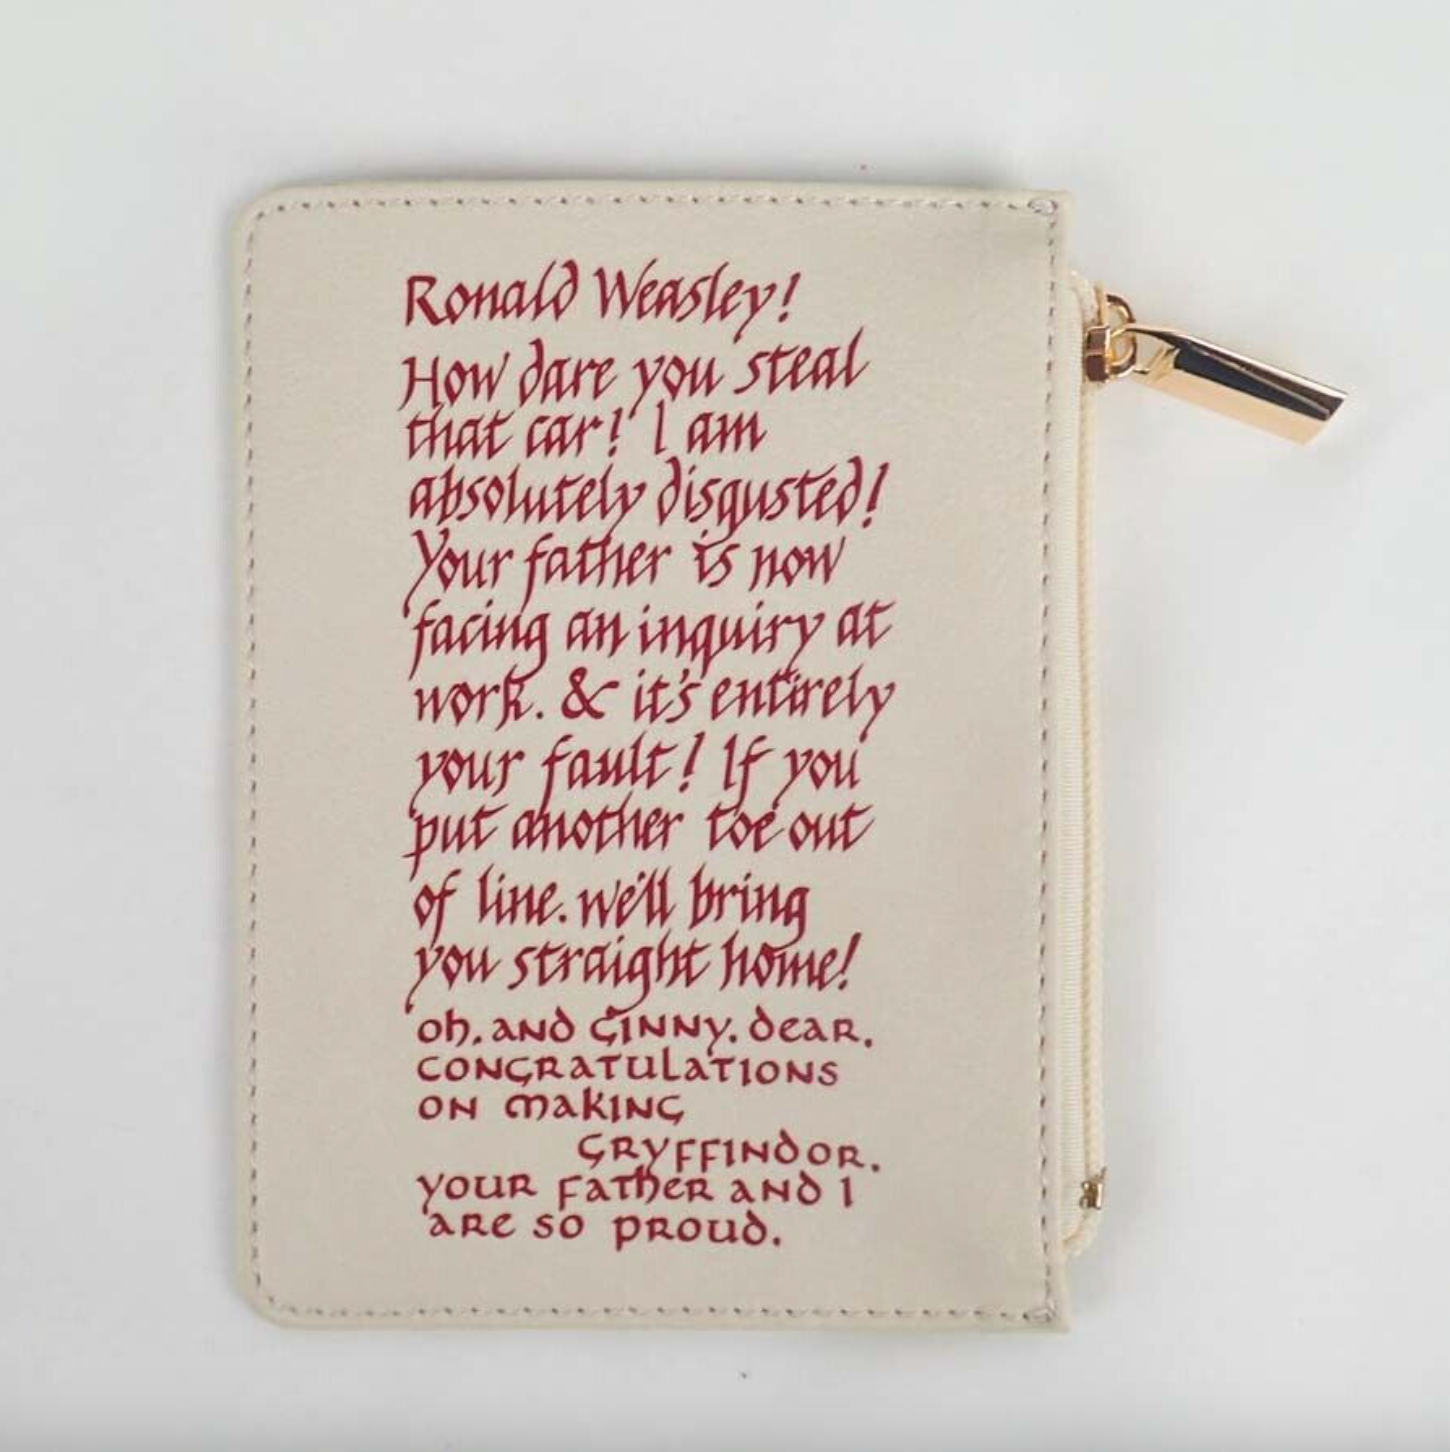 Ronald Weasley!
How dare you steal
that car! I am
absolutely disgusted!
Your father is now
facing an inquiry at
work. & it's entirely
your fault! If you
put another toe out
of line. we'll bring
you straight home!
oh. and Ginny. dear.
congratulations
on making
Gryffindor.
your father and I
are so proud.